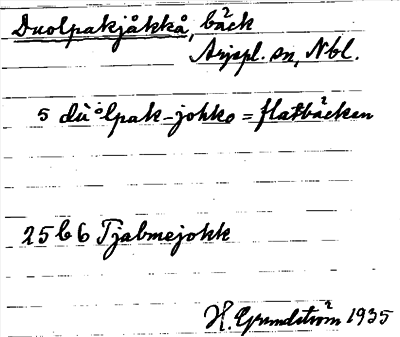 Duolpakjåkkå, bäck
Arjepl. sn, Nbl.
5 dùålpak-johko = flatbäcken
25 b 6 Tjabmejokk
H. Grundström 1935